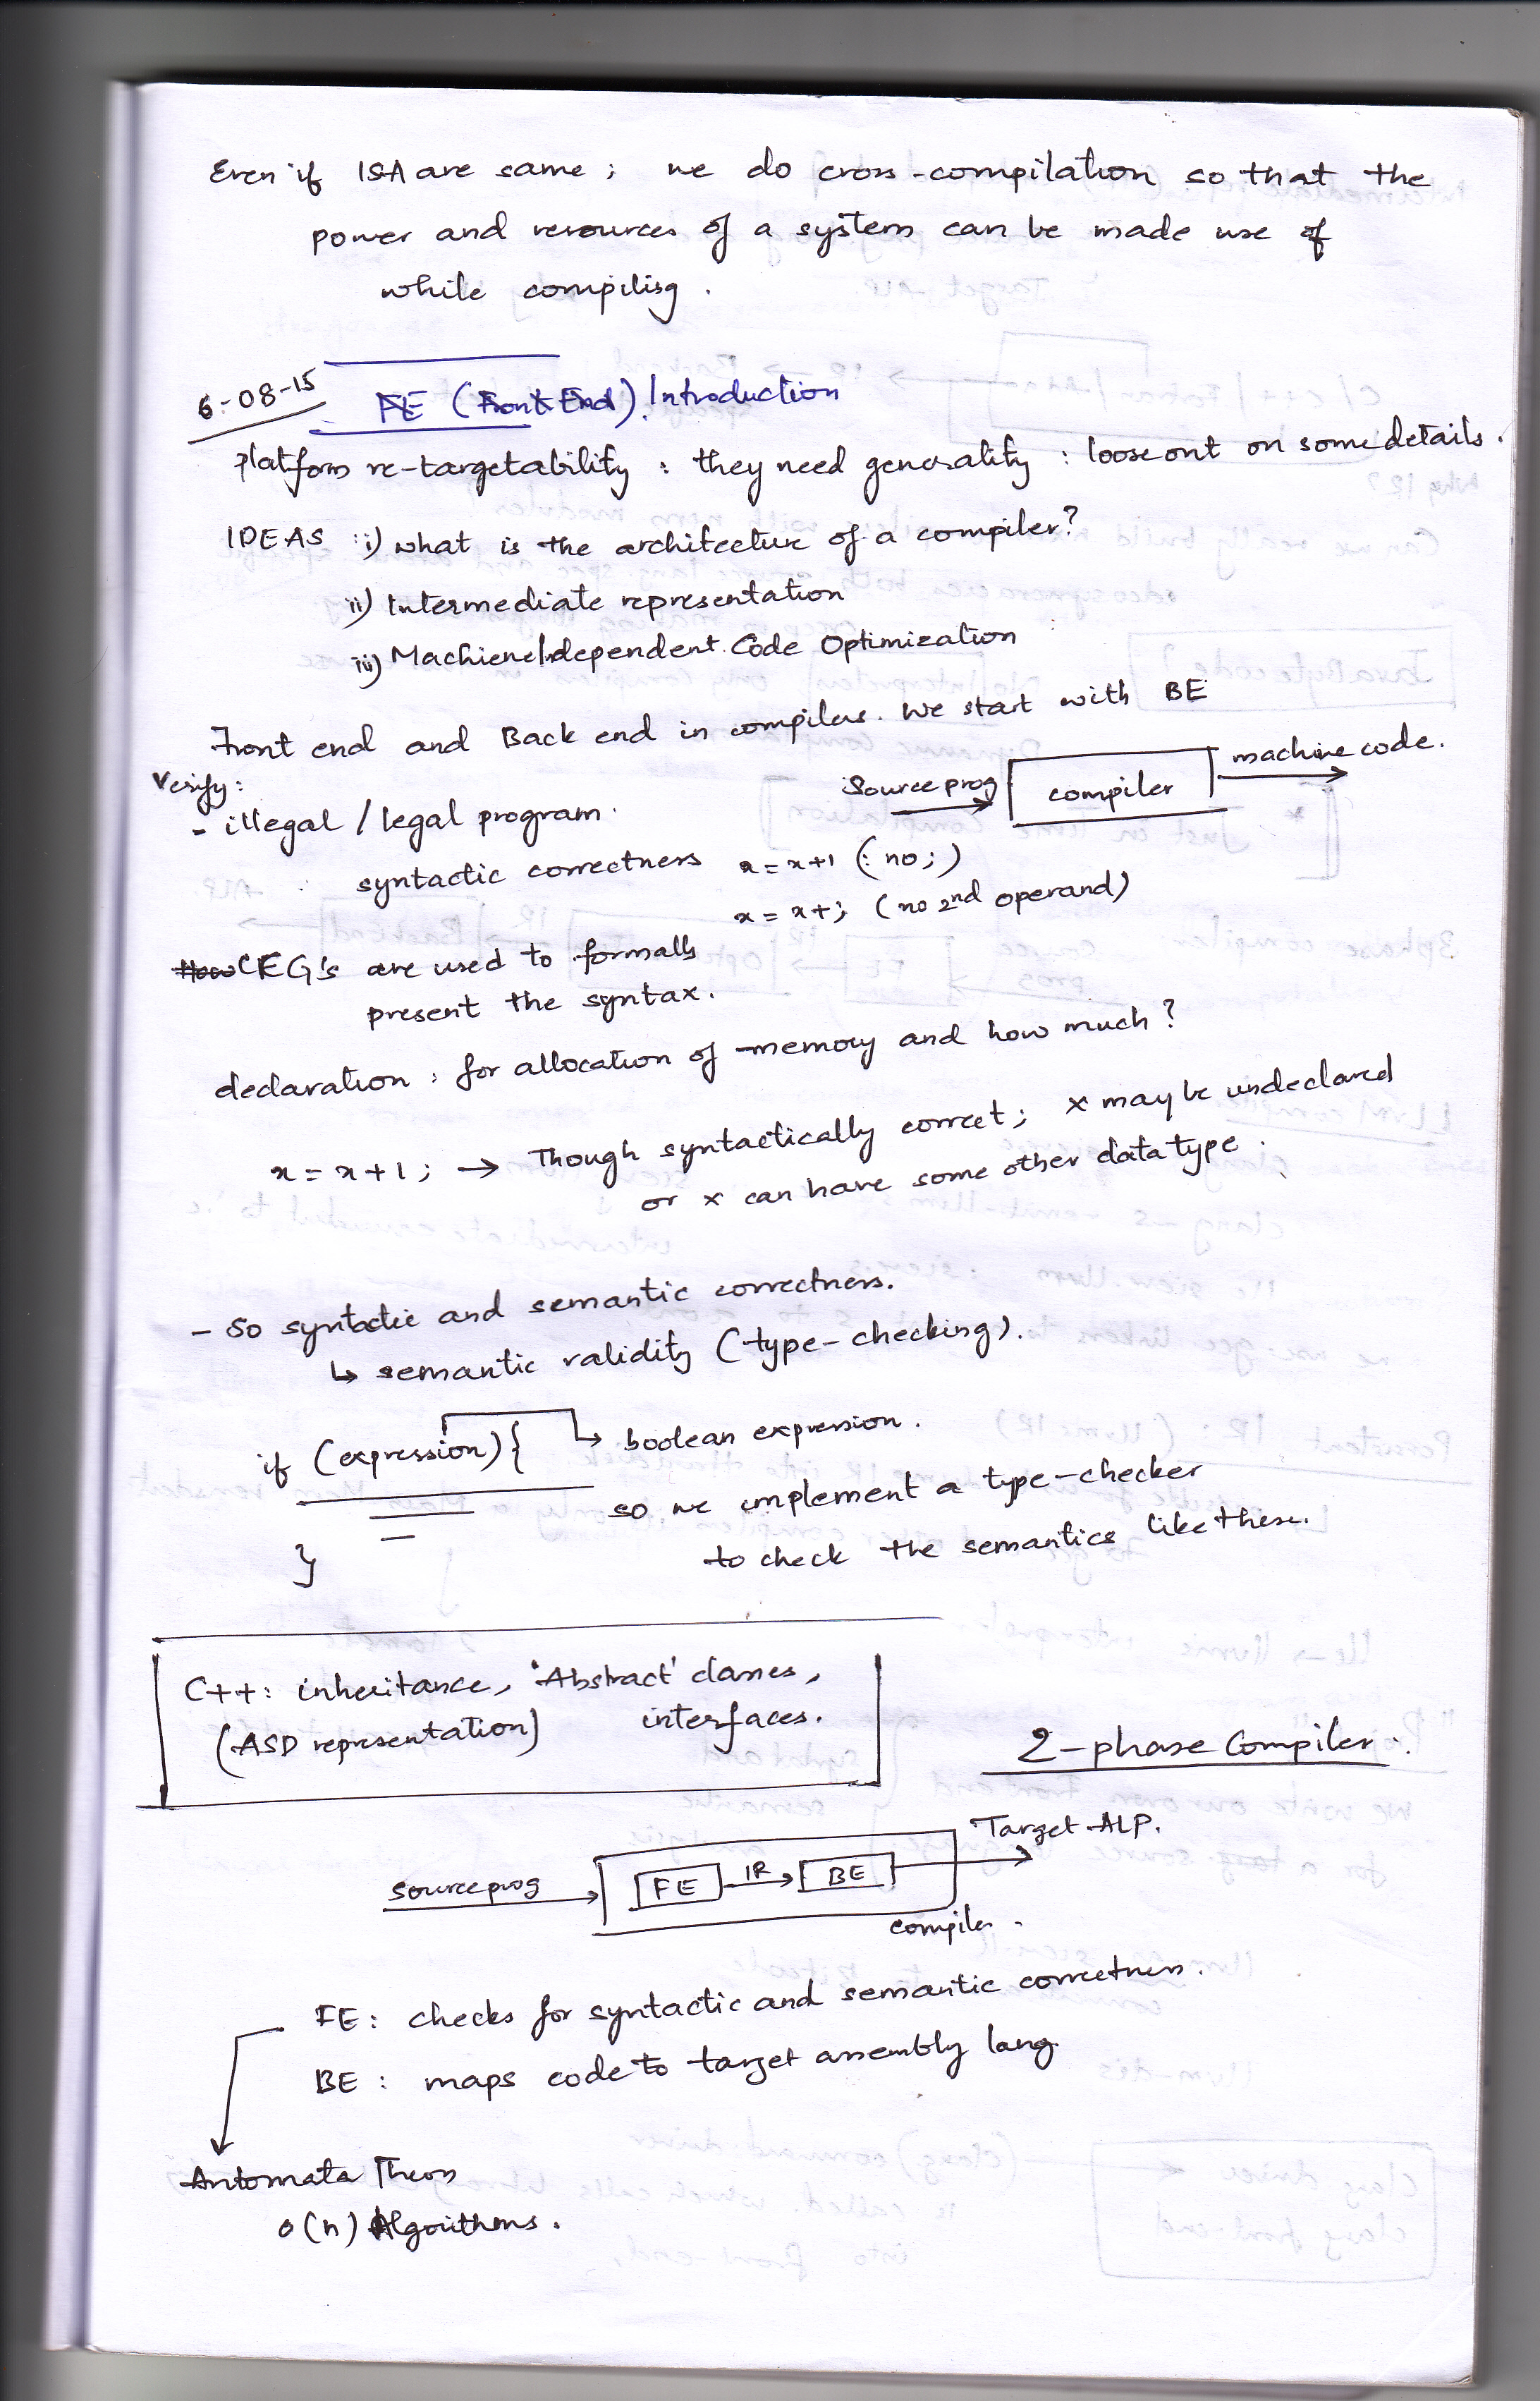 Even if ISA are same ; we do cross-compilation so that the
power and resources of a system can be made use of
while compilisg .
6-08-15
FE (Front End) Introduction
Platform re-targetability : they need generality : loose out on some details .
IDEAS i) what is the architecture of a compiler?
ii) Intermediate representation
iii) Machiene Independent Code Optimization
Front end and Back end in compilers. We start with BE
Verify:
Source prog compiler machine code.
- illegal / legal program.
syntactic correctness x = x+1 (: no ;)
x = x+; (no 2nd operand)
How CFG's are used to formally
present the syntax.
declaration : for allocation of memory and how much?
x = x+1 ; → Though syntactically correct ; x may be undeclared
or x can have some other data type .
- So syntactic and semantic correctness.
↳ semantic validity (type-checking).
if (expression) { ↳ boolean expression .
so we implement a type-checker
} to check the semantics like these.
C++: inheritance, 'Abstract' classes,
(ASD representation) interfaces.
2-phase Compiler.
Target ALP.
source prog FE IR BE
compiler .
FE : checks for syntactic and semantic correctness .
BE : maps code to target assembly lang.
Automata Theory
O(n) Algorithms .